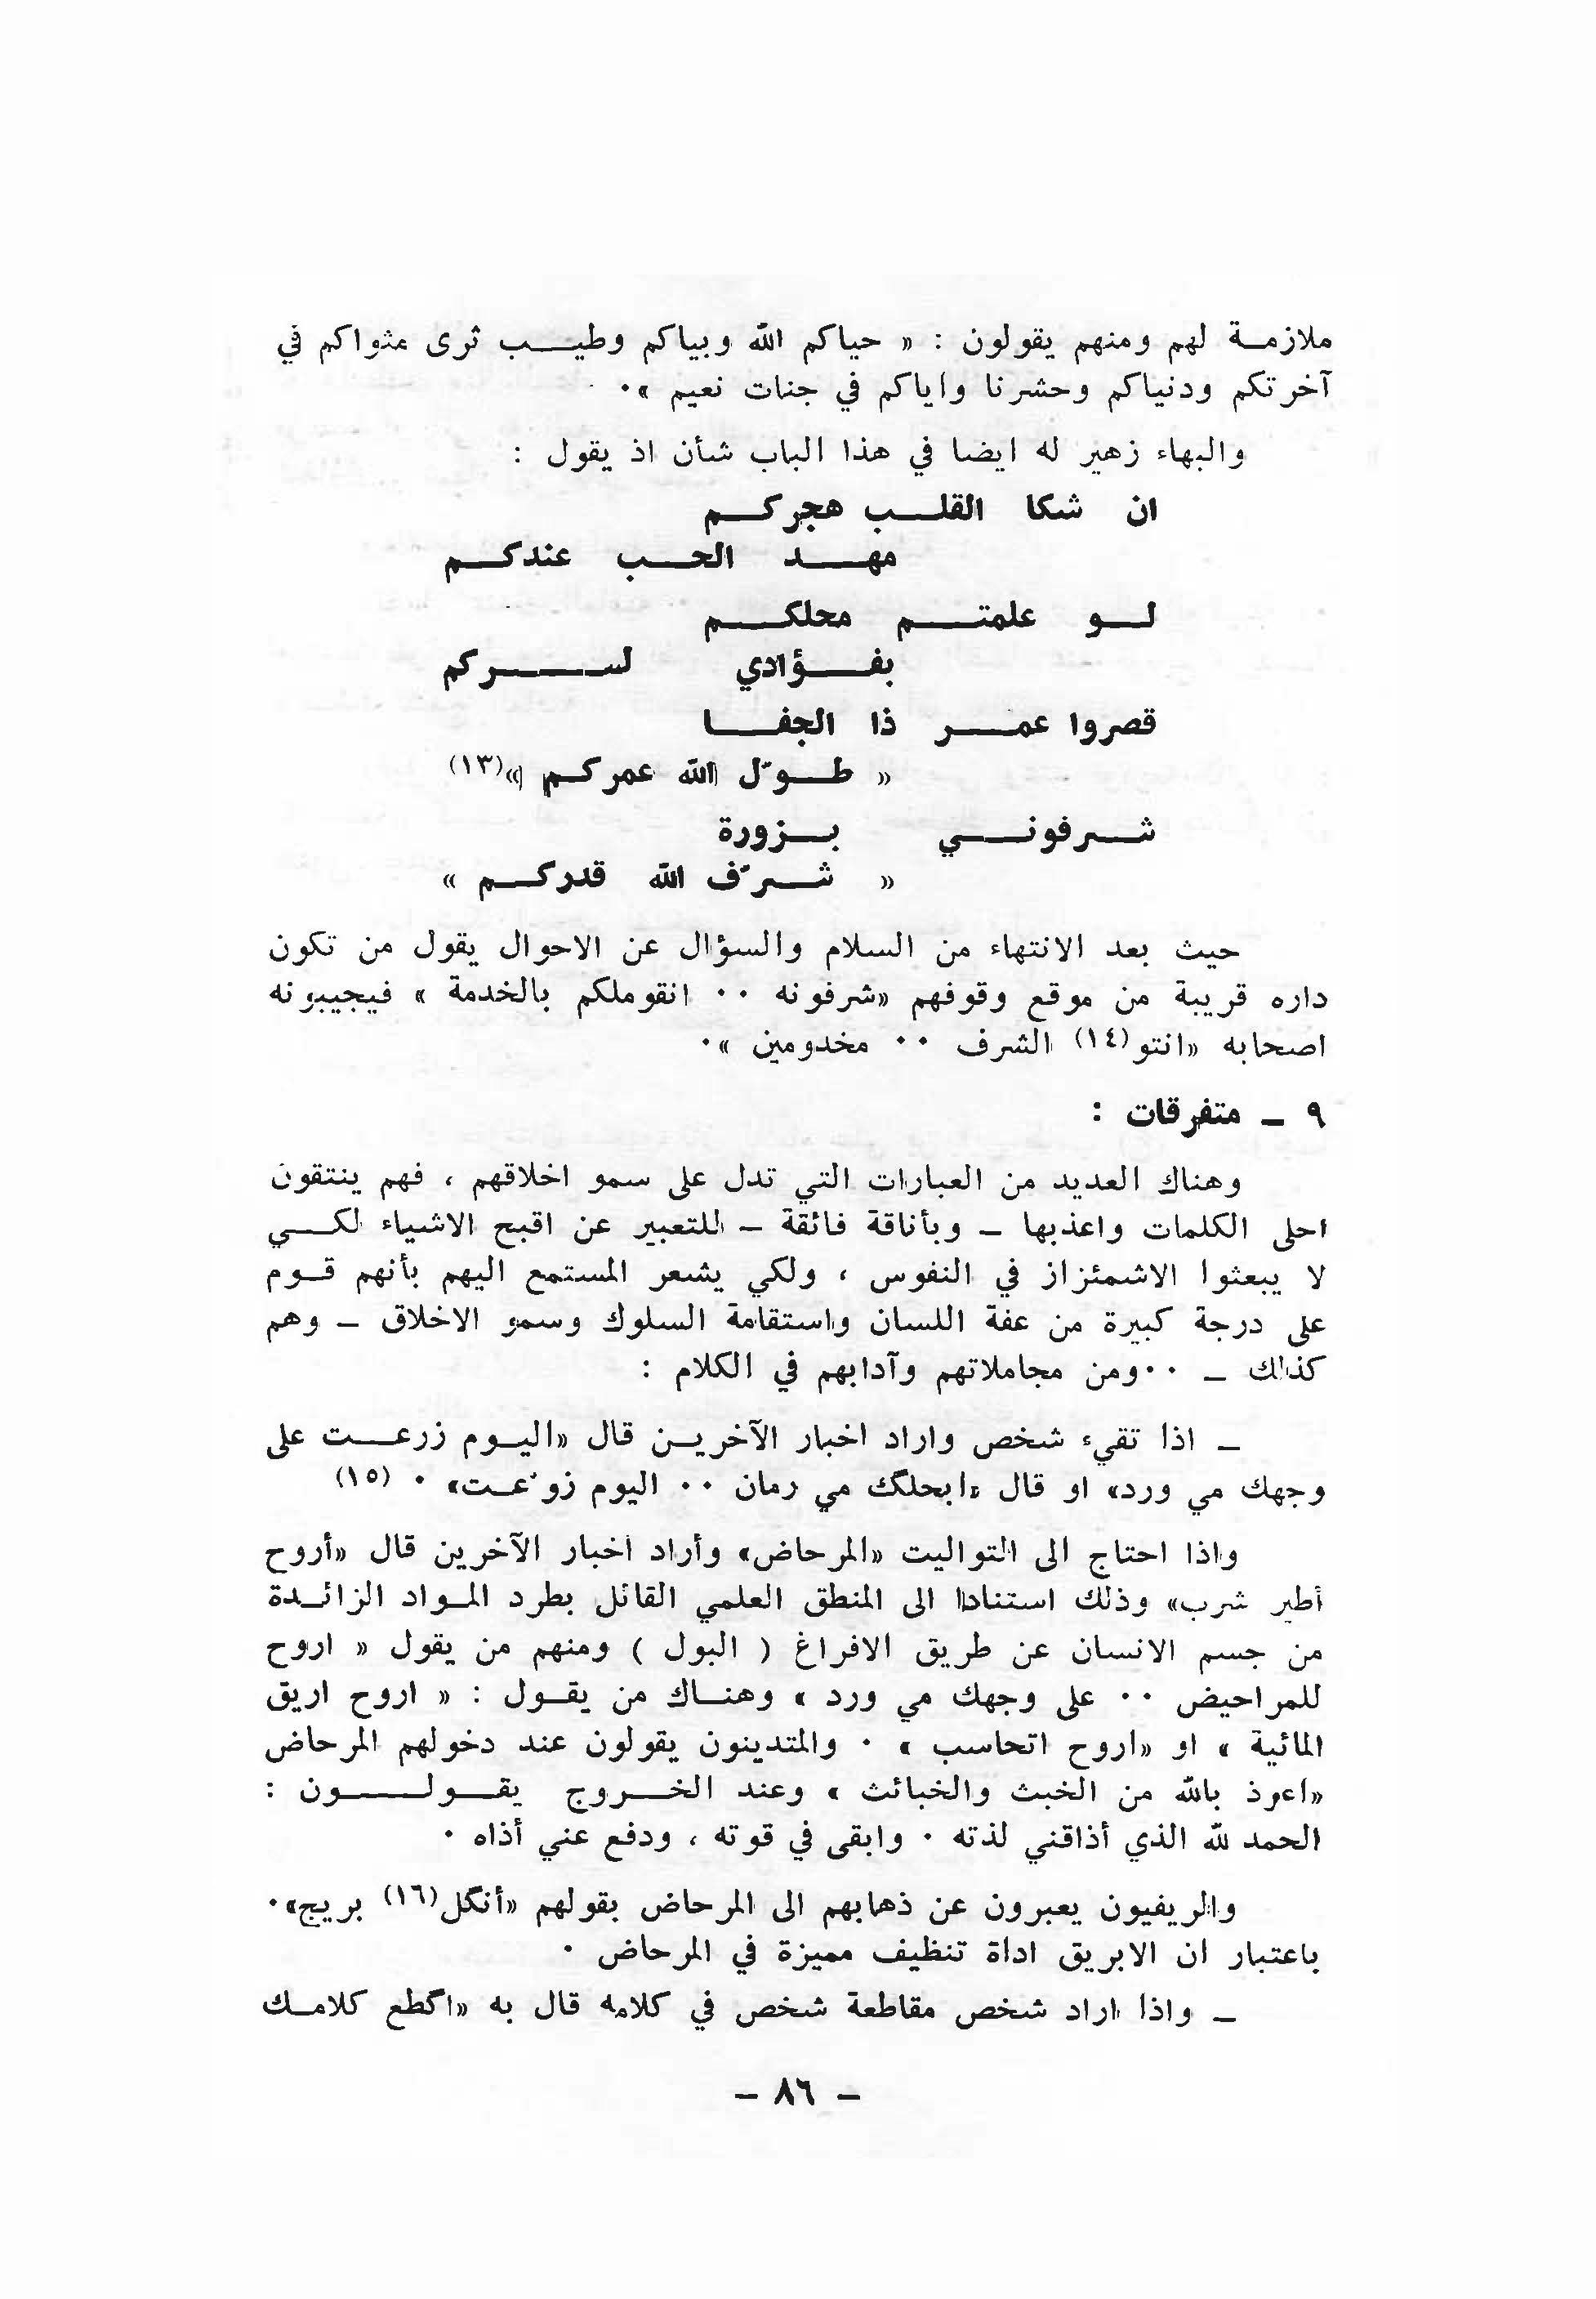 ملازمة لهم ومنهم يقولون : « حياكم الله وبياكم وطيب ثرى مثواكم في
آخرتكم ودنياكم وحشرنا واياكم في جنات نعيم »٠
والبهاء زهير له ايضا في هذا الباب شأن اذ يقول :
ان شكا القلب هجركم
مهد الحب عندكم
لو علمتم محلكم
بفؤادي لسركم
قصروا عمر ذا الجفا
« طوّل الله عمركم »(١٣)
شرفوني بزورة
« شرّف الله قدركم »
حيث بعد الانتهاء من السلام والسؤال عن الاحوال يقول من تكون
داره قريبة من موقع وقوفهم «شرفونه ٠٠ انقوملكم بالخدمة » فيجيبونه
اصحابه «انتو(١٤) الشرف ٠٠ مخدومين »٠
٩ ـ متفرقات :
وهناك العديد من العبارات التي تدل على سمو اخلاقهم ، فهم ينتقون
احلى الكلمات واعذبها ـ وبأناقة فائقة ـ للتعبير عن اقبح الاشياء لكي
لا يبعثوا الاشمئزاز في النفوس ، ولكي يشعر المستمع اليهم بأنهم قوم
على درجة كبيرة من عفة اللسان واستقامة السلوك وسمو الاخلاق ـ وهم
كذلك ـ ٠٠ومن مجاملاتهم وآدابهم في الكلام :
ـ اذا تقيء شخص واراد اخبار الآخرين قال «اليوم زرعت على
وجهك مي ورد» او قال «ابحلگك مي رمان ٠٠ اليوم زوّعت» ٠ (١٥)
واذا احتاج الى التواليت «المرحاض» وأراد اخبار الآخرين قال «أروح
أطير شرب» وذلك استنادا الى المنطق العلمي القائل بطرد المواد الزائدة
من جسم الانسان عن طريق الافراغ ( البول ) ومنهم من يقول « اروح
للمراحيض ٠٠ على وجهك مي ورد » وهناك من يقول : « اروح اريق
المائية » او «اروح اتحاسب » ٠ والمتدينون يقولون عند دخولهم المرحاض
«اعوذ بالله من الخبث والخبائث » وعند الخروج يقولون :
الحمد لله الذي أذاقني لذته ٠ وابقى في قوته ، ودفع عني أذاه ٠
والريفيون يعبرون عن ذهابهم الى المرحاض بقولهم «أنگل(١٦) بريج»٠
باعتبار ان الابريق اداة تنظيف مميزة في المرحاض ٠
ـ واذا اراد شخص مقاطعة شخص في كلامه قال به «اگطع كلامك
ـ ٨٦ ـ